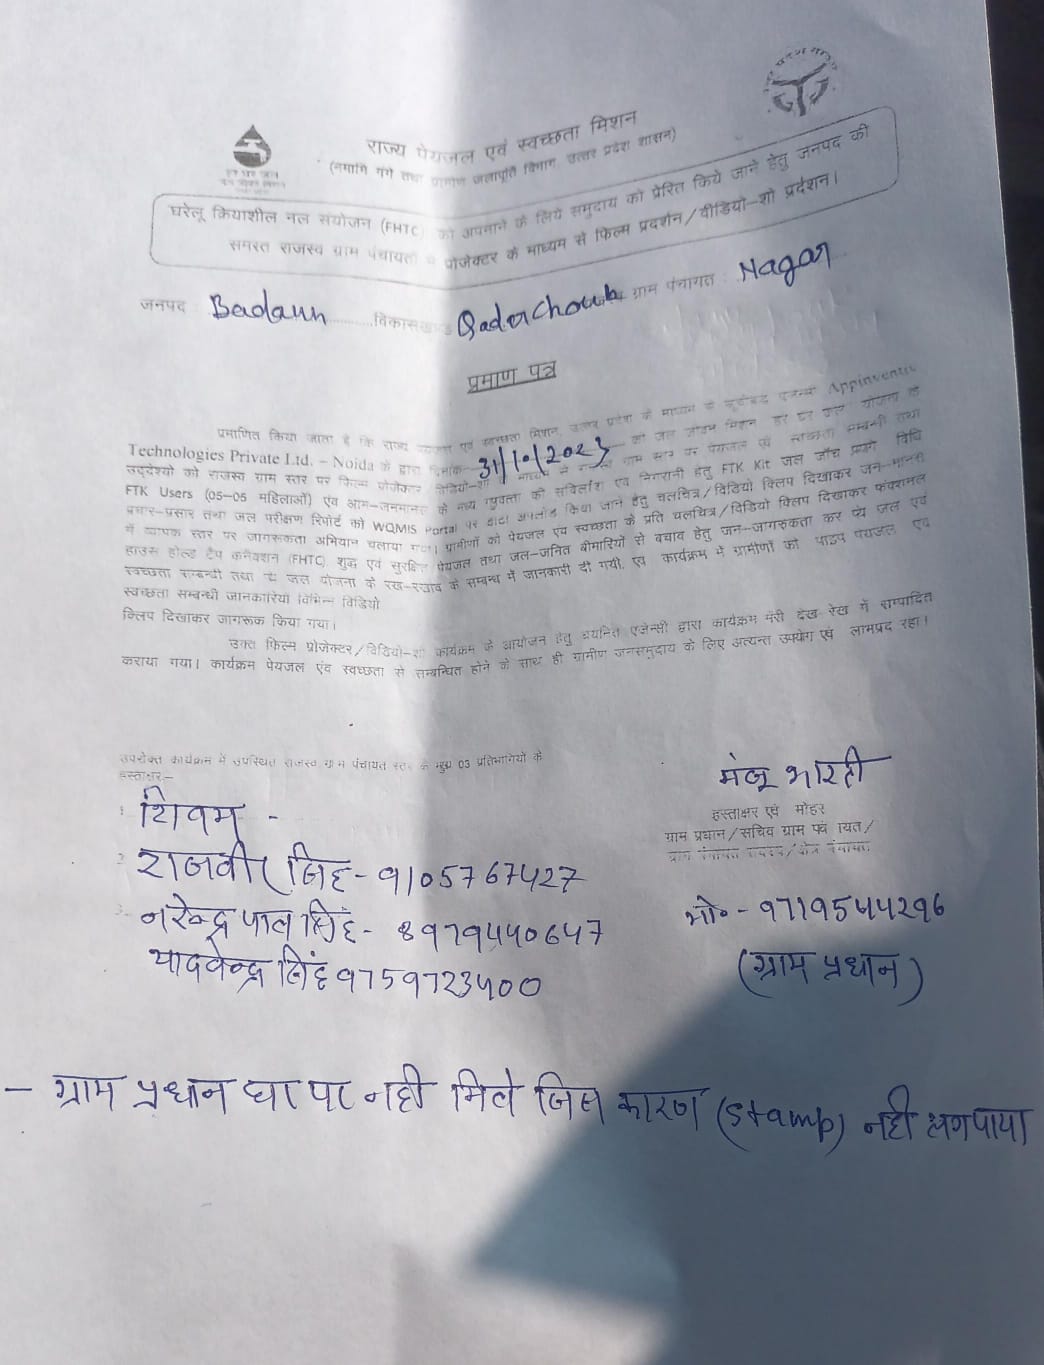 राज्य पेयजल एवं स्वच्छता मिशन
(नमामि गंगे तथा ग्रामीण जलापूर्ति विभाग, उत्तर प्रदेश शासन)
घरेलू क्रियाशील नल संयोजन (FHTC) को अपनाने के लिये समुदाय को प्रेरित किये जाने हेतु जनपद की
समस्त राजस्व ग्राम पंचायतों में प्रोजेक्टर के माध्यम से फिल्म प्रदर्शन/वीडियो-शो प्रर्दशन।
जनपद : Badaun ............विकासखण्ड Qaderchowk ग्राम पंचागत : Nagar
प्रमाण पत्र
प्रमाणित किया जाता है कि राज्य पेयजल एवं स्वच्छता मिशन, उत्तर प्रदेश के माध्यम से सूचीबद्ध एजेन्सी Appinventiv
Technologies Private Ltd. – Noida के द्वारा दिनांक 31/10/2023 को जल जीवन मिशन हर घर जल योजना के
उद्देश्यो को राजस्व ग्राम स्तर पर फिल्म प्रोजेक्टर विडियो-शो के माध्यम से राजस्व ग्राम स्तर पर पेयजल एवं स्वच्छता सम्बन्धी तथा
FTK Users (05-05 महिलाओं) एवं आम-जनमानस के मध्य गुणवत्ता की सर्विलांश एवं निगरानी हेतु FTK Kit जल जाँच प्रयोग विधि
प्रचार-प्रसार तथा जल परीक्षण रिपोर्ट को WQMIS Portal पर डाटा अपलोड किया जाने हेतु चलचित्र/विडियो क्लिप दिखाकर जन-मानस
में व्यापक स्तर पर जागरूकता अभियान चलाया गया। ग्रामीणों को पेयजल एवं स्वच्छता के प्रति चलचित्र/विडियो क्लिप दिखाकर फंक्शनल
हाउस होल्ड टैप कनैक्शन (FHTC) शुद्ध एवं सुरक्षित पेयजल तथा जल-जनित बीमारियों से बचाव हेतु जन-जागरुकता कर पेय जल एवं
स्वच्छता सम्बन्धी तथा पेय जल योजना के रख-रखाव के सम्बन्ध में जानकारी दी गयी, एवं कार्यक्रम में ग्रामीणों को पाइप पेयजल एवं
स्वच्छता सम्बन्धी जानकारियां विभिन्न विडियो
क्लिप दिखाकर जागरूक किया गया।
उक्त फिल्म प्रोजेक्टर/विडियो-शो कार्यक्रम के आयोजन हेतु चयनित एजेन्सी द्वारा कार्यक्रम मेरी देख रेख में सम्पादित
कराया गया। कार्यक्रम पेयजल एंव स्वच्छता से सम्बन्धित होने के साथ ही ग्रामीण जनसमुदाय के लिए अत्यन्त उपयोग एवं लाभप्रद रहा।
उपरोक्त कार्यक्रम में उपस्थित राजस्व ग्राम पंचायत स्तर के मुख्य 03 प्रतिभागियों के
हस्ताक्षर:–
मंजू भारती
हस्ताक्षर एवं मोहर
ग्राम प्रधान/सचिव ग्राम पंचायत/
1. शिवम् -
2. राजवीर सिंह - 9105767427
3. नरेन्द्र पाल सिंह - 8979440647
यादवेन्द्र सिंह 9759723400
मो॰ - 9719544296
(ग्राम प्रधान)
– ग्राम प्रधान घर पर नही मिले जिस कारण (stamp) नही लग पाया